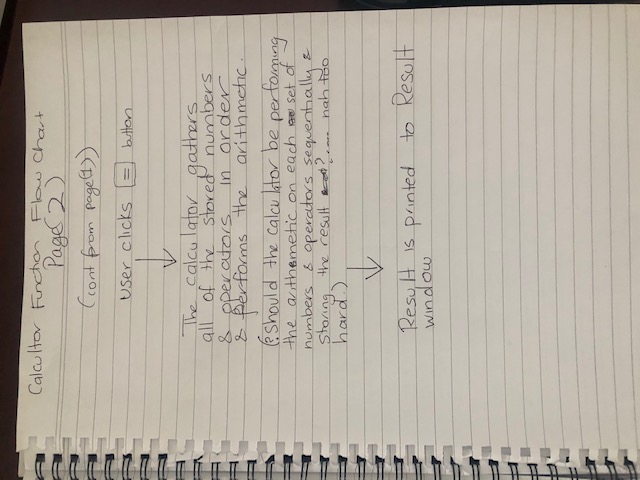 Calcultor Function Flow Chart
Page(2)
(cont from page(1))
user clicks = button
The calculator gathers
all of the stored numbers
& operators in order
& performs the arithmetic.
(?Should the calculator be performing
the arithemetic on each set of
numbers & operators sequentially &
storing the result ?.... nah too
hard.)
Result is printed to Result
window